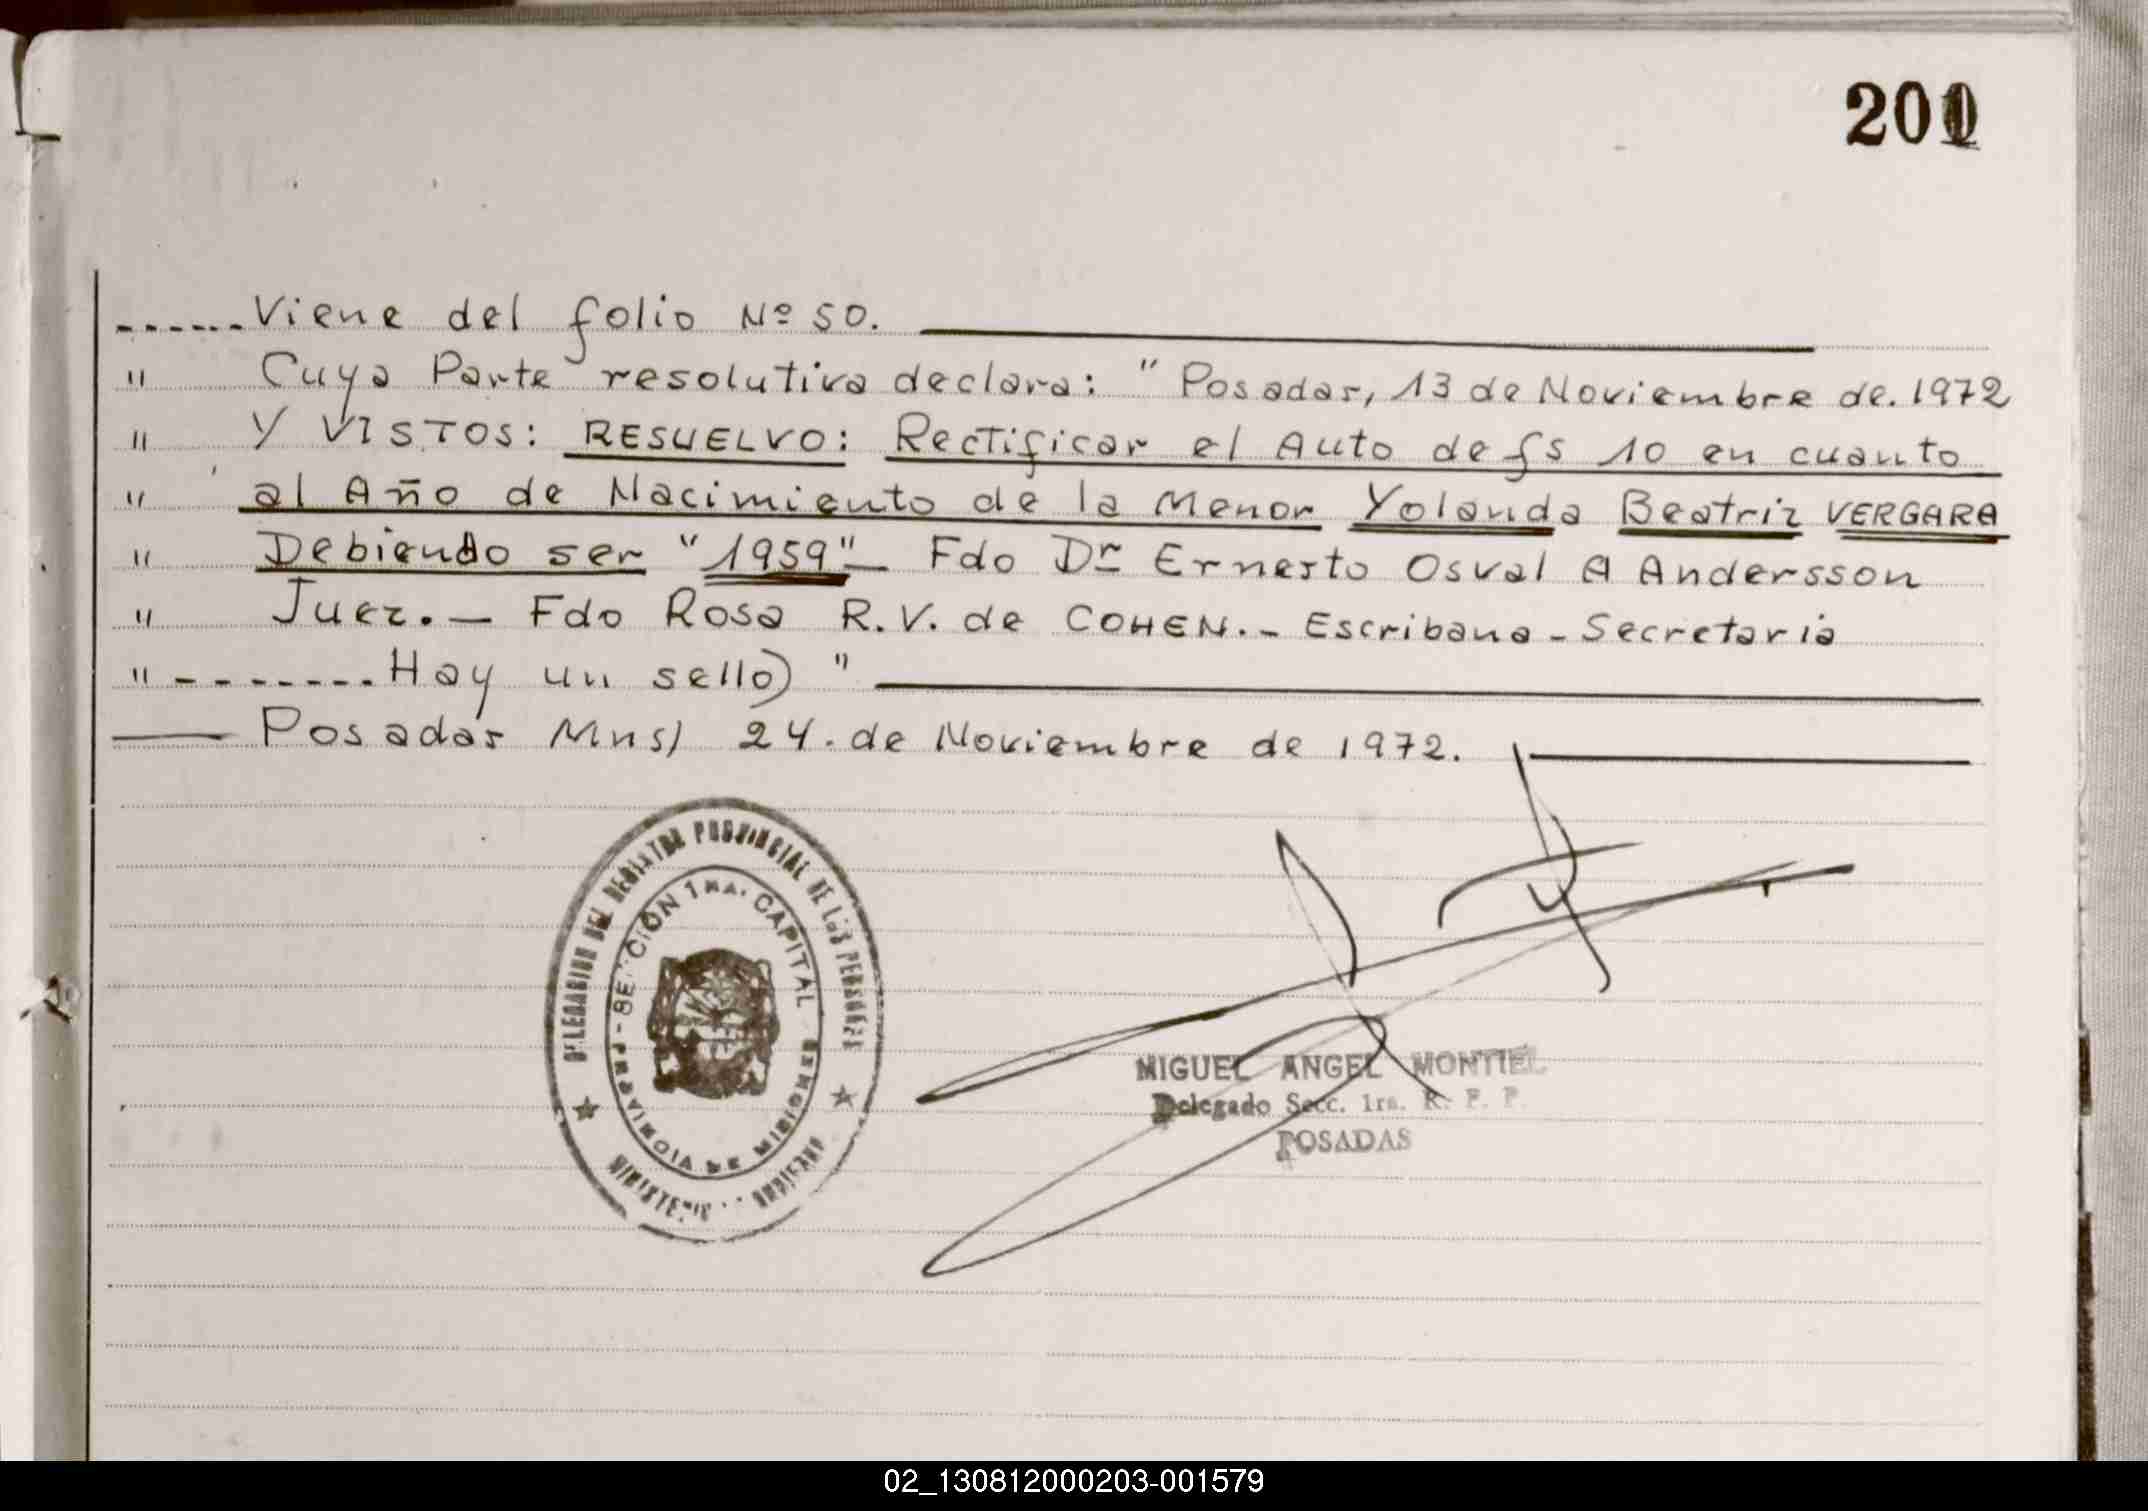 201
......Viene del folio Nº 50.
" Cuya Parte resolutiva declara: " Posadas, 13 de Noviembre de. 1972
" Y VISTOS: RESUELVO: Rectificar el Auto de fs 10 en cuanto
" al Año de Nacimiento de la Menor Yolanda Beatriz VERGARA
" Debiendo ser "1959"_ Fdo Dr Ernesto Osval A Andersson
" Juez. _ Fdo Rosa R.V. de COHEN. - Escribana - Secretaria
" -------- Hay un sello) "
Posadas Mns) 24. de Noviembre de 1972.
DELEGACION DEL REGISTRO PROVINCIAL DE LAS PERSONAS
SECCION 1RA. CAPITAL
PROVINCIA DE MISIONES
MIGUEL ANGEL MONTIEL
Delegado Secc. 1ra. R. P. P.
POSADAS
02_130812000203-001579